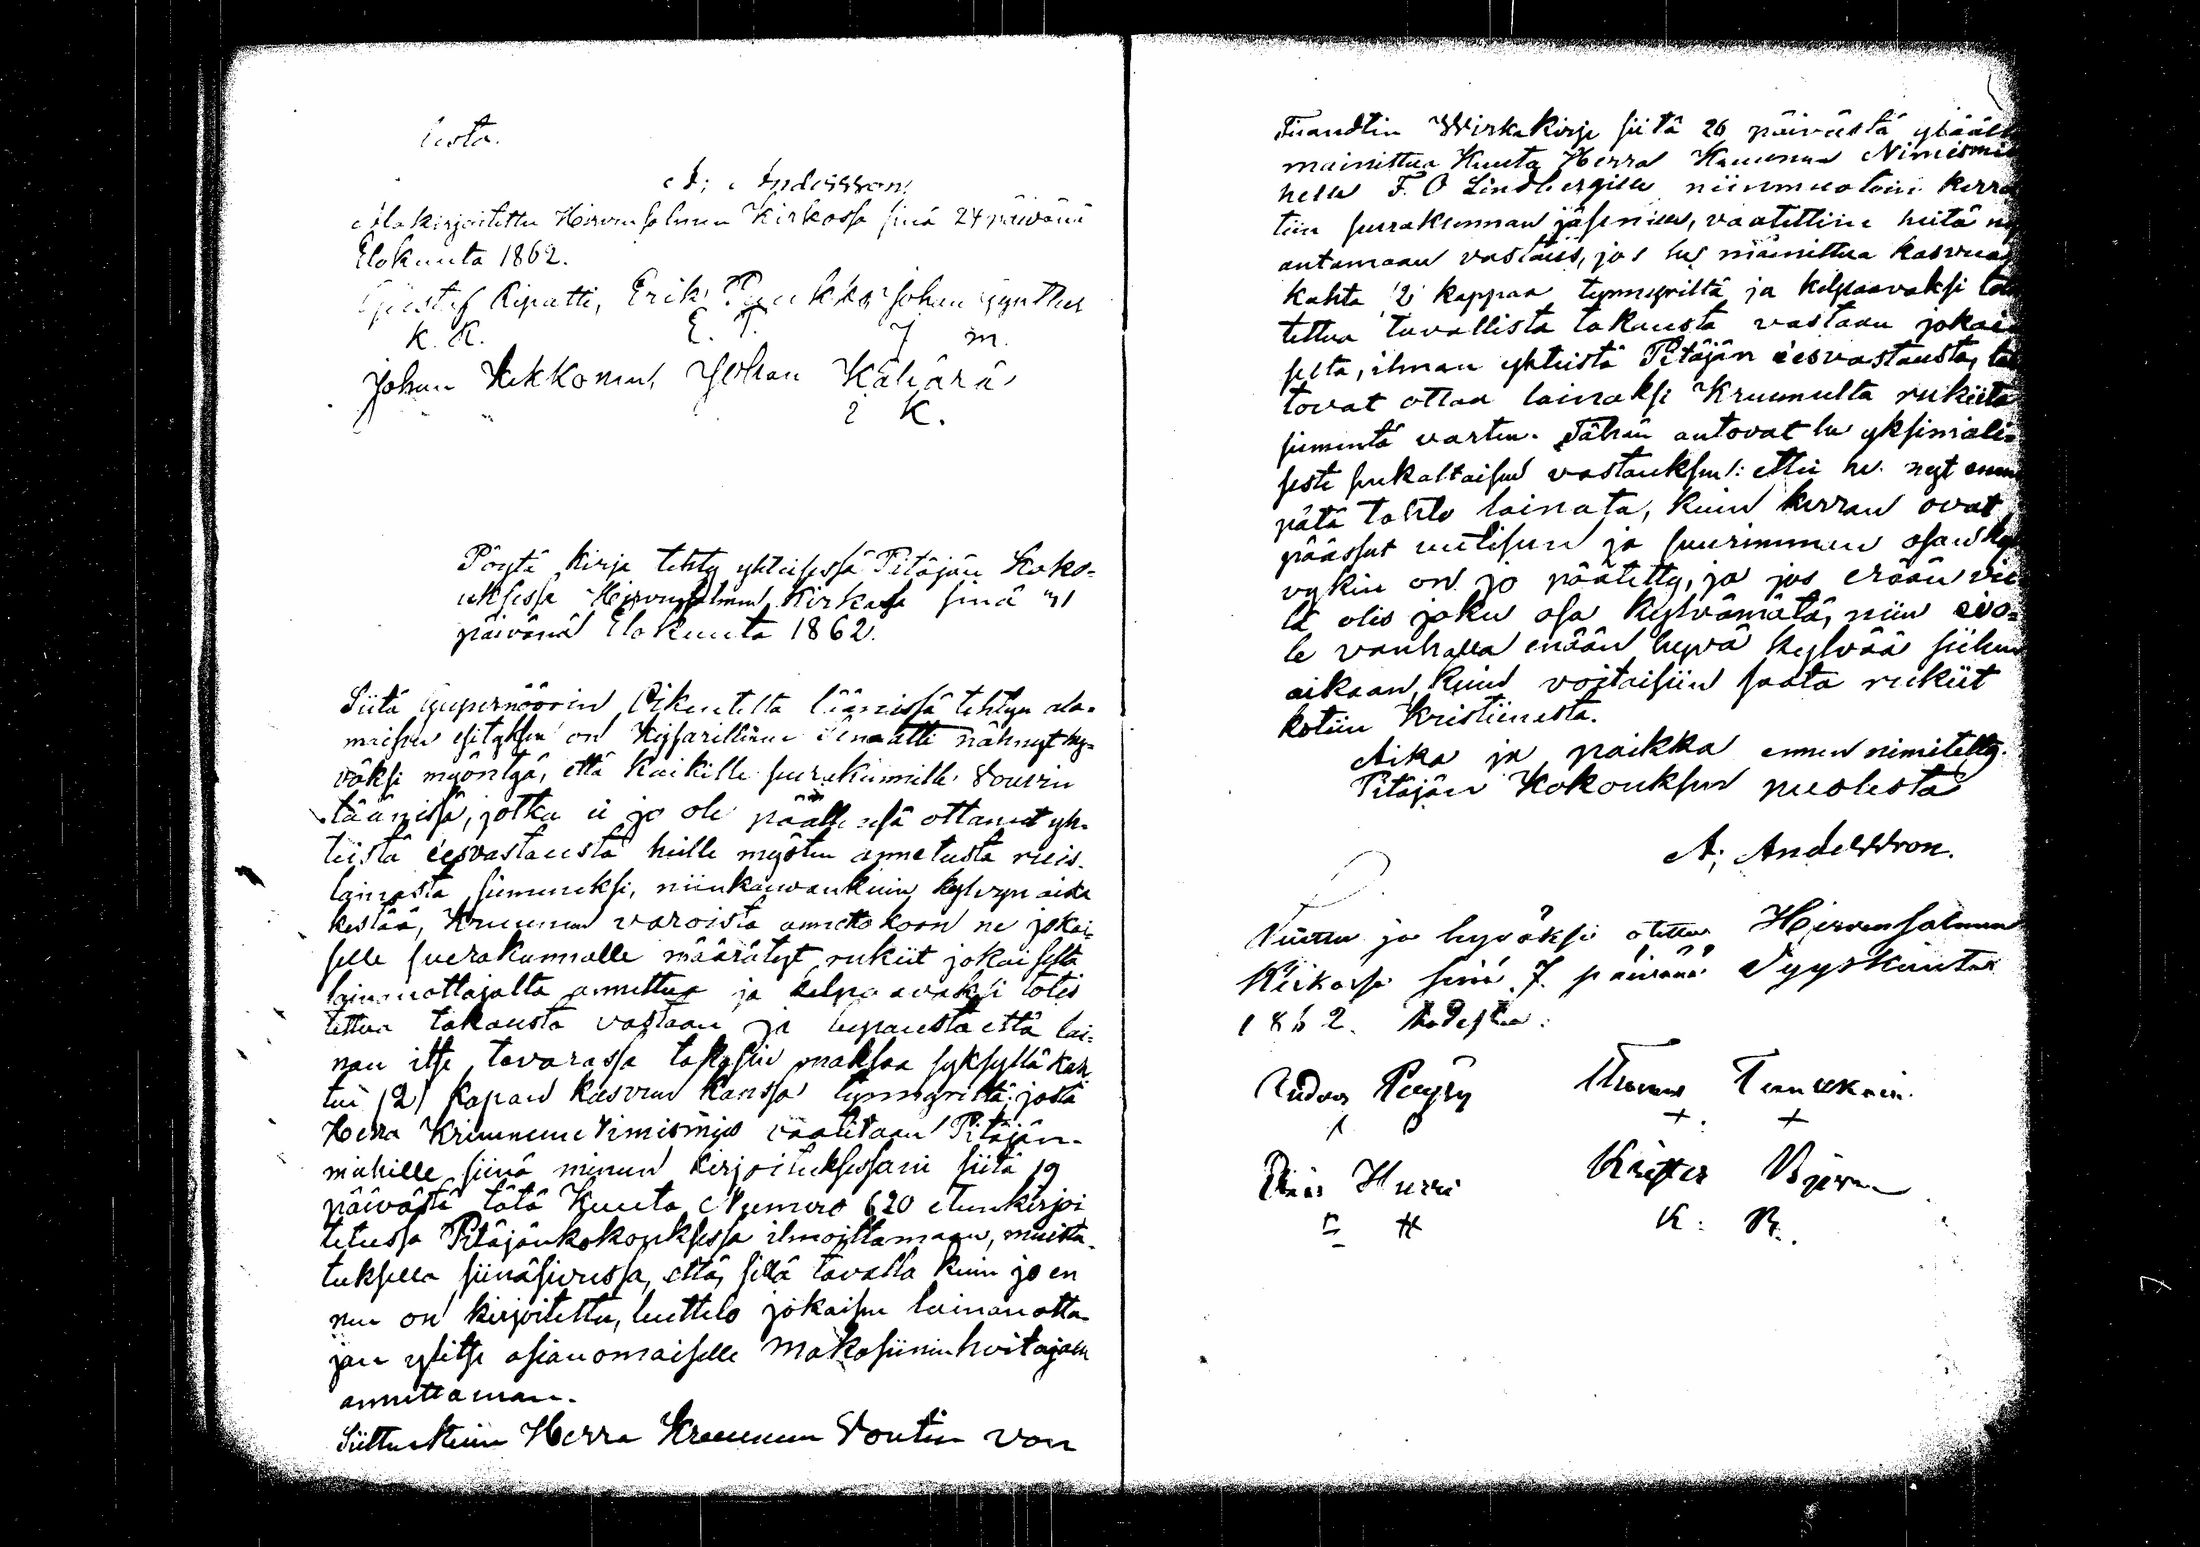 lesta.
A; Andersson.
Allakirjoitettu Hirvensalmen Kirkossa sinä 24 päivänä
Elokuuta 1862.
Gustaf Ripatti, Erik Pynkkä Johan
K. R. E. J m.
Johan Kekkonen, Johan Kähärä
K.
Pöytä Kirja tehty yhteisessä Pitäjän Koko-
uksessa Hirvensalmen Kirkossa sinä 31
päivänä Elokuuta 1862.
Siitä Gupernöörin Oikeutelta läänissä tehtyn ala-
maisen esityksen on Keisarillinen Senaatti nähnyt hy-
väksi myöntyä, että kaikille seurakunnille Vourin
läänissä, jotka ei jo ole päällensä ottanut yh-
teistä eesvastausta heille myöten annetusta ruis-
lainasta siemeneksi, niinkauwankuin kylvyn aika
kestää, Kruunun varoista annettakoon ne jokai-
selle seurakunnalle määrätyt rukiit jokaiselta
lainanottajalta annettua ja kelpaavaksi totis
tettua takausta vastaan ja lupausta että lai-
nan itse tavarassa takasin maksaa syksyllä kah-
den (2) kapan kasvun kanssa tynnyriltä; josta
Herra Kruunun Nimismies vaaditaan Pitäjän-
miehille siinä minun kirjoituksessani siitä 19
päivästä tätä Kuuta Numero 620 etunkirjoi
tetussa Pitäjänkokouksessa ilmoittamaan, muista-
tuksella siinäsivussa, että, sillä tavalla kuin jo en
nen on kirjoitettu, luettelo jokaisen lainanotta-
jan ylitse asianomaiselle Makasiinin hoitajalle
annettaman.
Siittenkuin Herra Kruunun Voutin von
Fieandtin Wirkakirje siitä 26 päivästä ylääl
mainittua Kuuta Herra Kruunun Nimismie
helle F. O Lindbergille niinmuotoin kerro
tiin seurakunnan jäsenille, vaatettiin heitä ny
antamaan vastaus, jos he mainittua kasvua
kahta (2) kappaa tynnyriltä ja kelpaavaksi to
tettua tavallista takausta vastaan jokai
selta, ilman yhteistä Pitäjän eesvastausta, tah
tovat ottaa lainaksi Kruunulta rukiita
siementä varten. Tähän antovat he yksimieli-
sesti seukaltaisen vastauksen: että he nyt enem
pätä tahdo lainata, kuin kerran ovat
päässet uutiseen ja suurimman osan ky
vykin on jo päätetty, ja jos erään vie
lä olis joku osa kylvämätä, niin eio-
le vanhalla enään hyvä kylvää siihen
aikaan, kuin voitaisiin saata rukiit
kotiin Kristiinasta.
Aika ja paikka ennen nimitetty.
Pitäjän Kokouksen puolesta
A; Andersson.
Luettu ja hyväksi otettu Hirvensalmen
Kirkossa sinä 7 päivänä Syyskuuta
1862. Todistaa:
Pöyry
+ +
Hurri Krister Björn
H K: B.